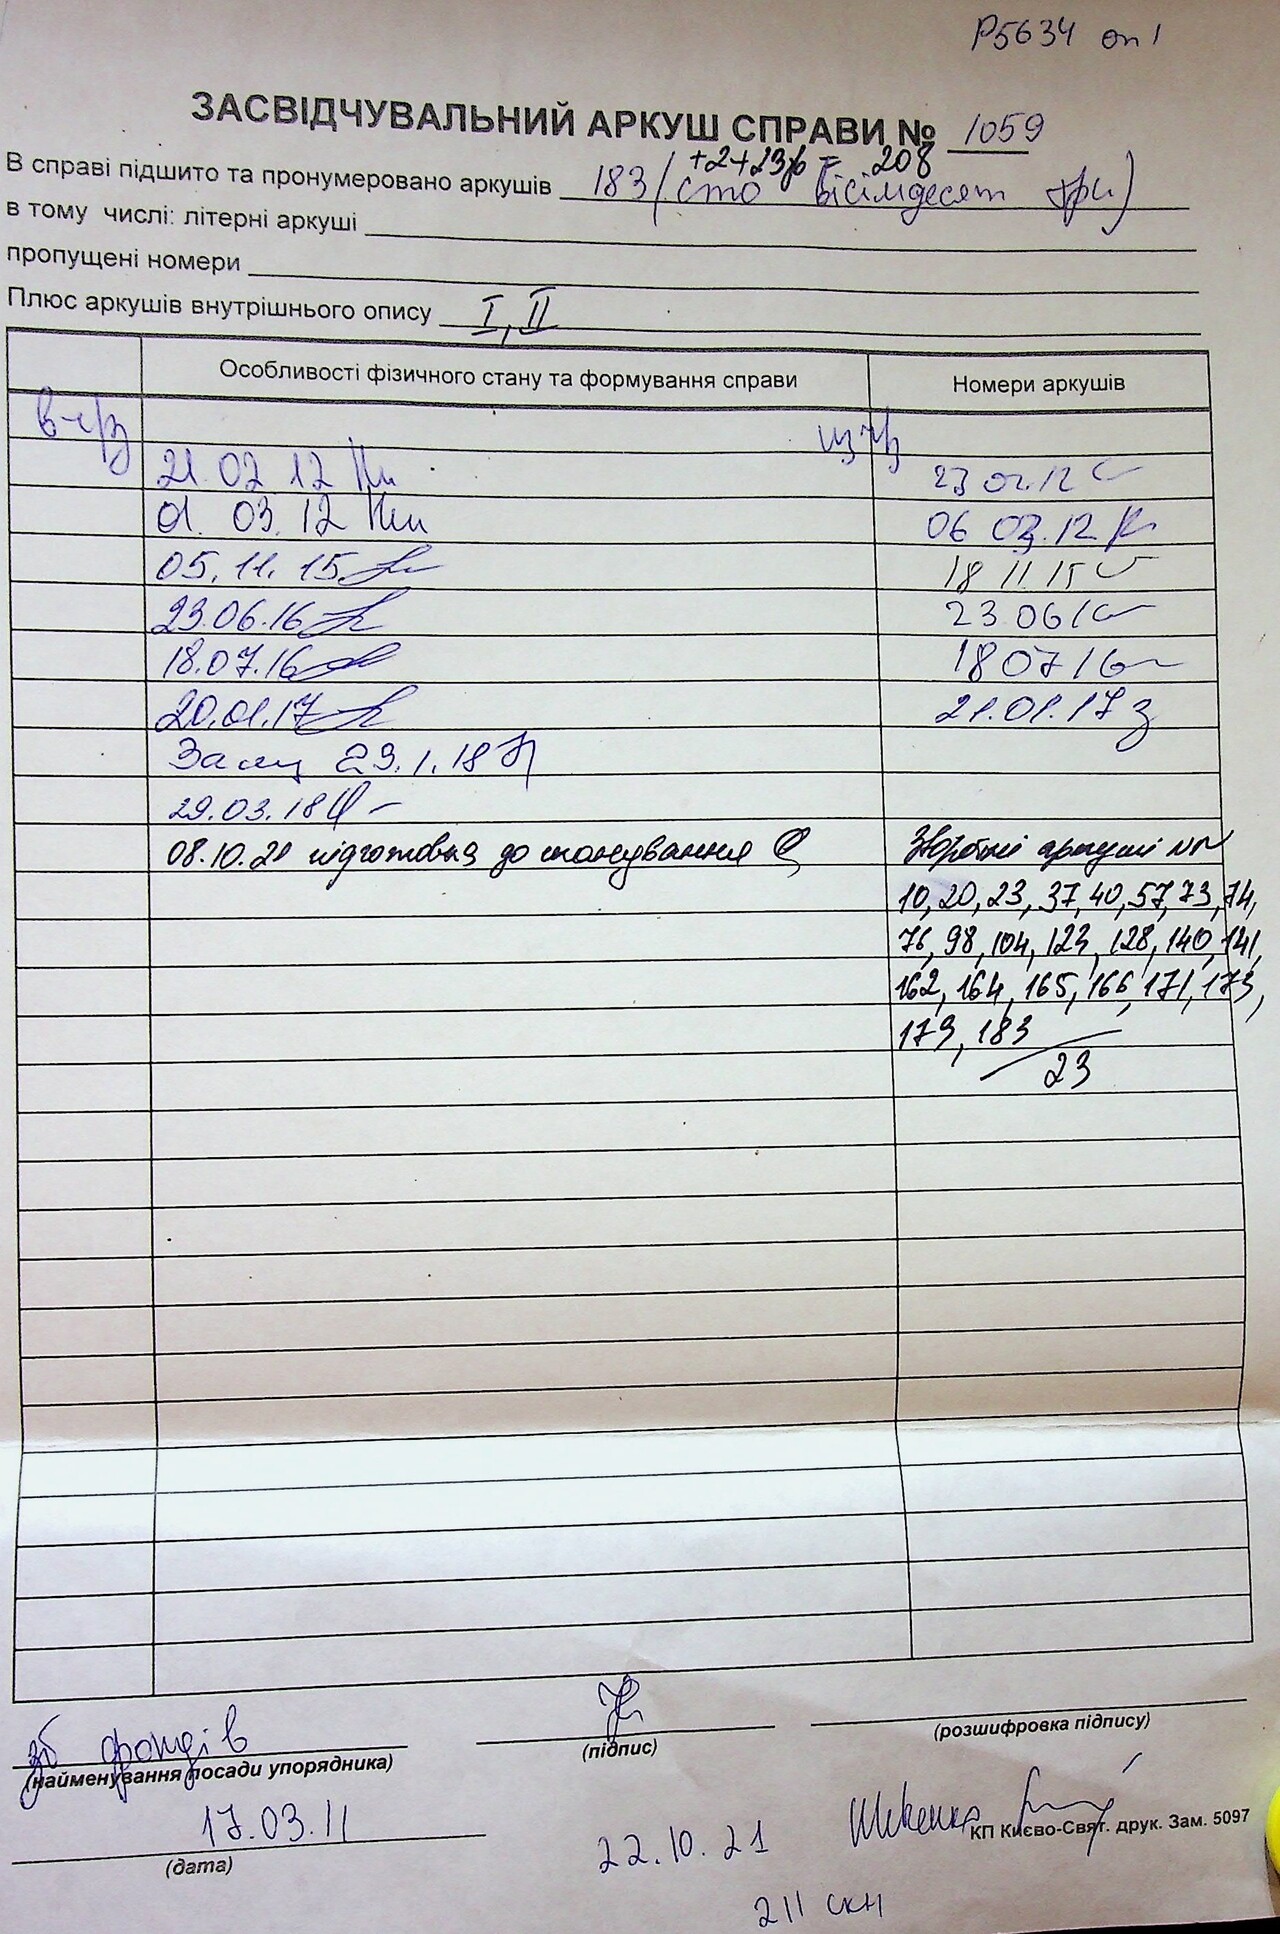 Р5634 оп 1
ЗАСВІДЧУВАЛЬНИЙ АРКУШ СПРАВИ № 1059
+2+23 = 208
В справі підшито та пронумеровано аркушів 183 (сто вісімдесят три)
в тому числі: літерні аркуші
пропущені номери
Плюс аркушів внутрішнього опису I, II
Особливості фізичного стану та формування справи Номери аркушів
21.02 12 23 02.12
01. 03. 12 06 03.12
05. 11. 15 18 11 15
23.06.16 23 06 16
18.07.16 18 07 16
20.01.17 21.01.17
29.1.18
29.03.18
08.10.21 підготовка до сканування Зворотні аркуші №№
10, 20, 23, 37, 40, 57, 73, 74,
76, 98, 104, 123, 128, 140, 141,
162, 164, 165, 166, 171, 173,
179, 183
23
зб фондів
(найменування посади упорядника) (підпис) (розшифровка підпису)
17.03.11
(дата)
22.10.21
КП Києво-Свят. друк. Зам. 5097
211 скн